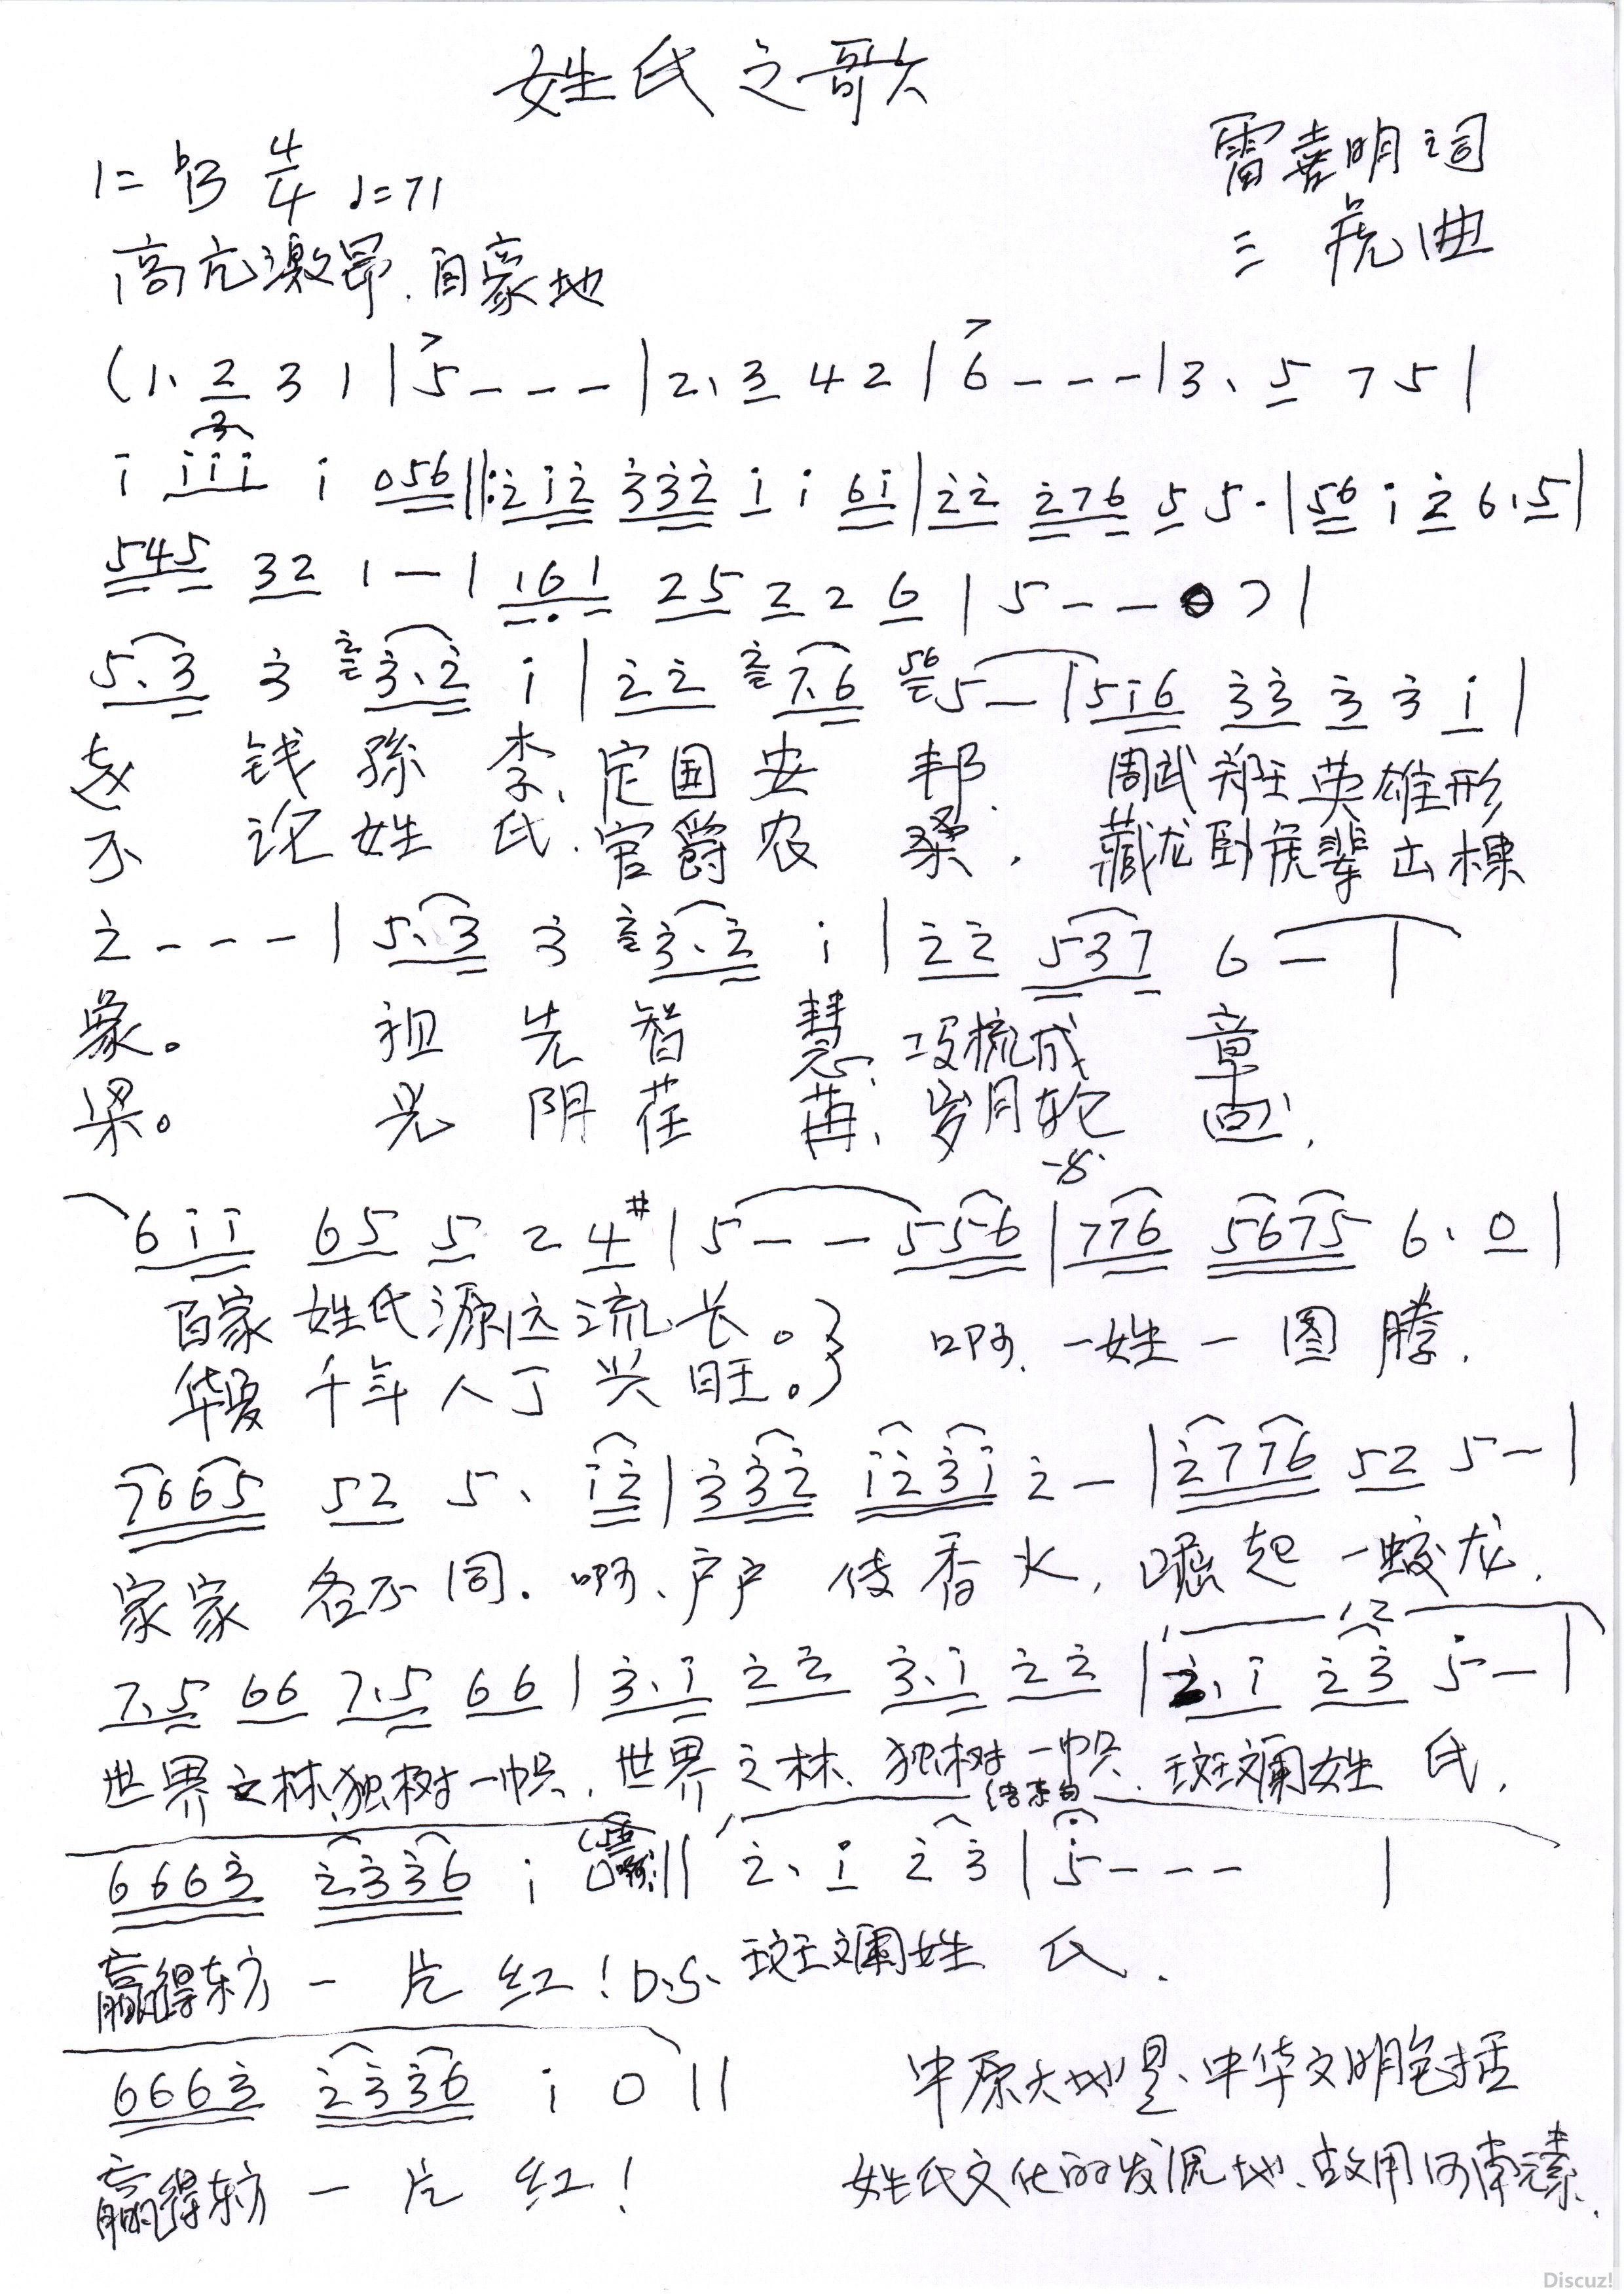 姓氏之歌
1=♭B 4/4 ♩=71
雷喜明词
高亢激昂、自豪地
三虎曲
(1. 2 3 1 | 5 - - - | 2. 3 4 2 | 6 - - - | 3. 5 7 5 |
3
i i i i i 0 5 6 ‖: 2 i 2 3 3 2 i i 6 i | 2 2 2 7 6 5 5. | 5 6 i 2 6. 5 |
5 4 5 3 2 1 - | 1 6 1 2 5 2 2 6 | 5 - - 0 ) |
5. 3 3 2 3. 2 i | 2 2 2 7. 6 56 5 - | 5 i 6 3 3 3 3 i |
赵钱孙李、定国安邦、周武郑王英雄形
不论姓氏、官爵农桑，藏龙卧虎辈出栋
2 - - - | 5. 3 3 2 3. 2 i | 2 2 5 3 7 6 - |
象。祖先智慧、梳成章
梁。光阴荏苒、岁月轮回，
6 i i 6 5 5 2 4# | 5 - - 5 5 6 | 7 7 6 5 6 7 5 6. 0 |
百家姓氏源远流长。} 啊、一姓一图腾，
华夏千年人丁兴旺。}
7 6 6 5 5 2 5. i 2 | 3 3 2 i 2 3 i 2 - | 2 7 7 6 5 2 5 - |
家家各不同．啊、户户传香火，崛起一蛟龙，
1.2
7. 5 6 6 7. 5 6 6 | 3. i 2 2 3. i 2 2 | 2. i 2 3 5 - |
世界之林、独树一帜，世界之林、独树一帜，斑斓姓氏，
结束句
6 6 6 3 2 3 3 6 i 0 :‖ 2. i 2 3 | 5 - - - |
赢得东方一片红！D.S. 斑斓姓氏．
6 6 6 3 2 3 3 6 i 0 ‖
赢得东方一片红！
中原大地是、中华文明包括
姓氏文化的发源地、故用河南元素．
Discuz!